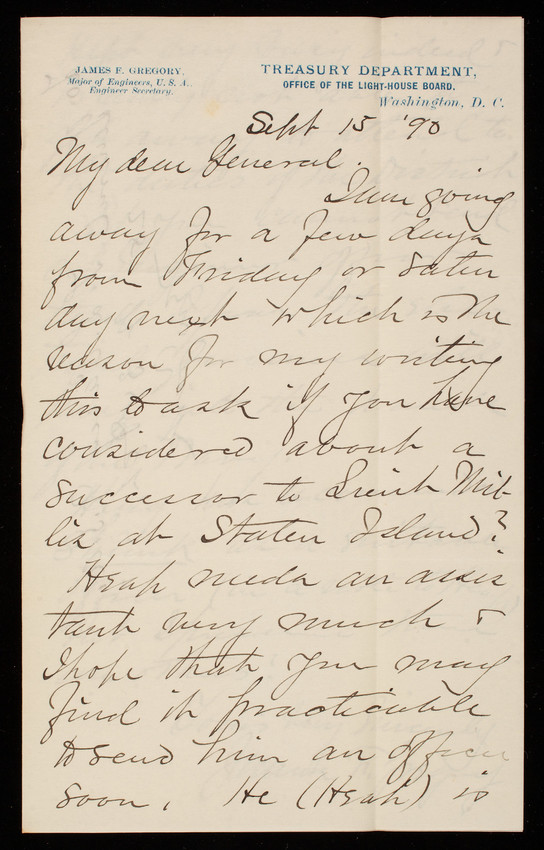 JAMES F. GREGORY,
Major of Engineers, U. S. A.,
Engineer Secretary.
TREASURY DEPARTMENT,
OFFICE OF THE LIGHT-HOUSE BOARD.
Washington, D. C.
Sept 15 '90
My dear General.
I am going
away for a few days
from Friday or Satur
day next which is the
reason for my writing
this to ask if you have
considered about a
successor to Lieut Mil-
lis at Staten Island?
Heap needs an assis
tant very much &
I hope that you may
find it practicable
to send him an officer
soon. He (Heap) is